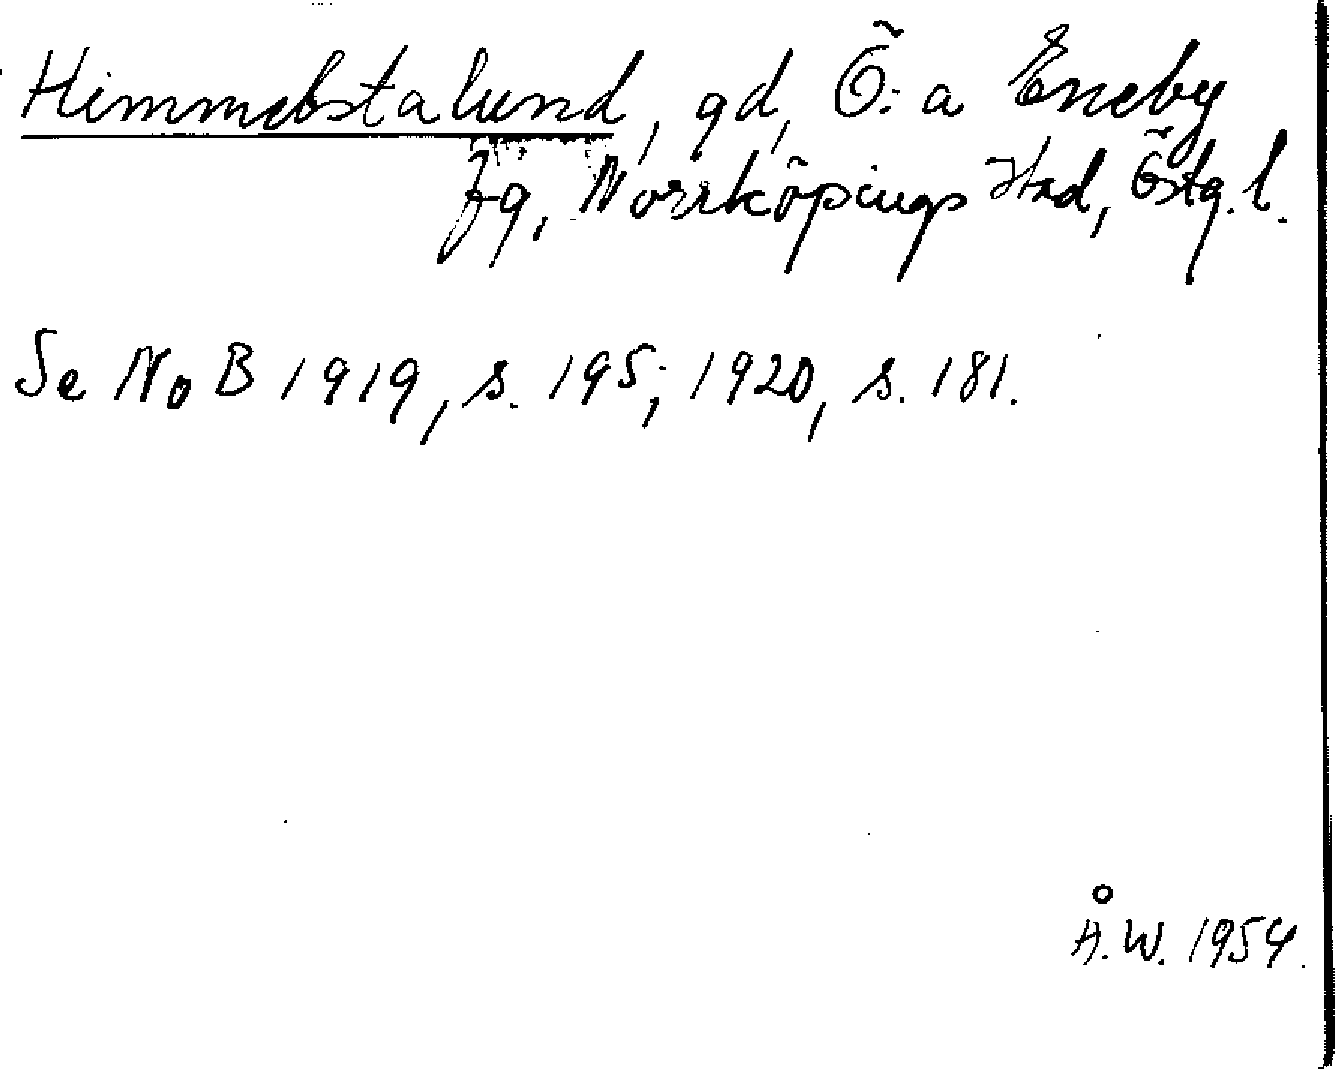 Himmelstalund, gd, Ö:a Eneby
fg, Norrköpings stad, Östg.l.
Se NoB 1919, s. 195; 1920, s. 181.
Å.W. 1954.